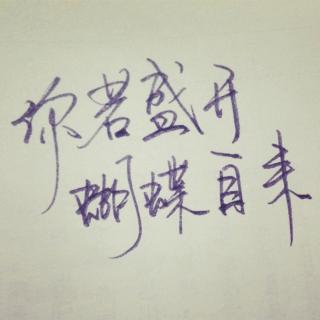 你若盛开
蝴蝶自来